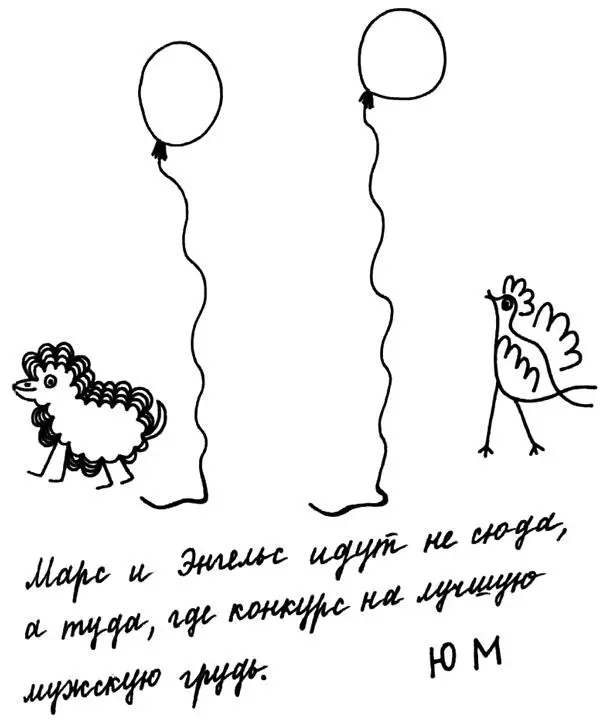 Марс и Энгельс идут не сюда,
а туда, где конкурс на лучшую
мужскую грудь.
Ю М